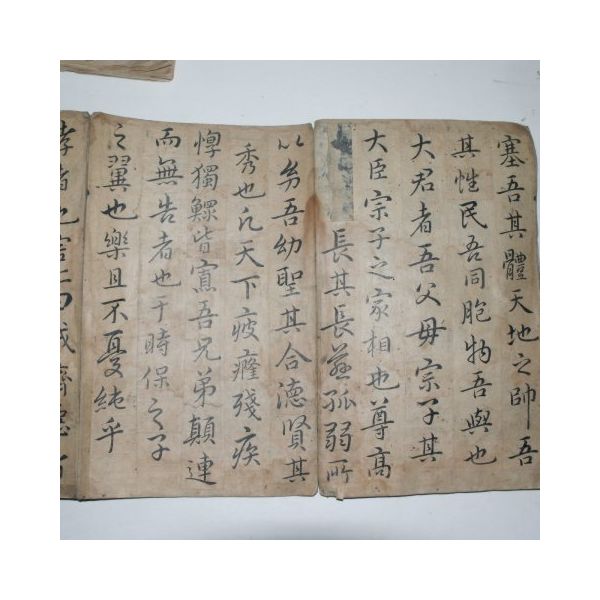 塞吾其體天地之帥吾
其性民吾同胞物吾與也
大君者吾父母宗子其
大臣宗子之家相也尊高
長其長慈孤弱所
以幼吾幼聖其合德賢其
秀也凡天下疲癃殘疾
惸獨鰥皆寡吾兄弟顛連
而無告者也于時保之子
之翼也樂且不憂純乎
孝者也害仁曰賊濟惡